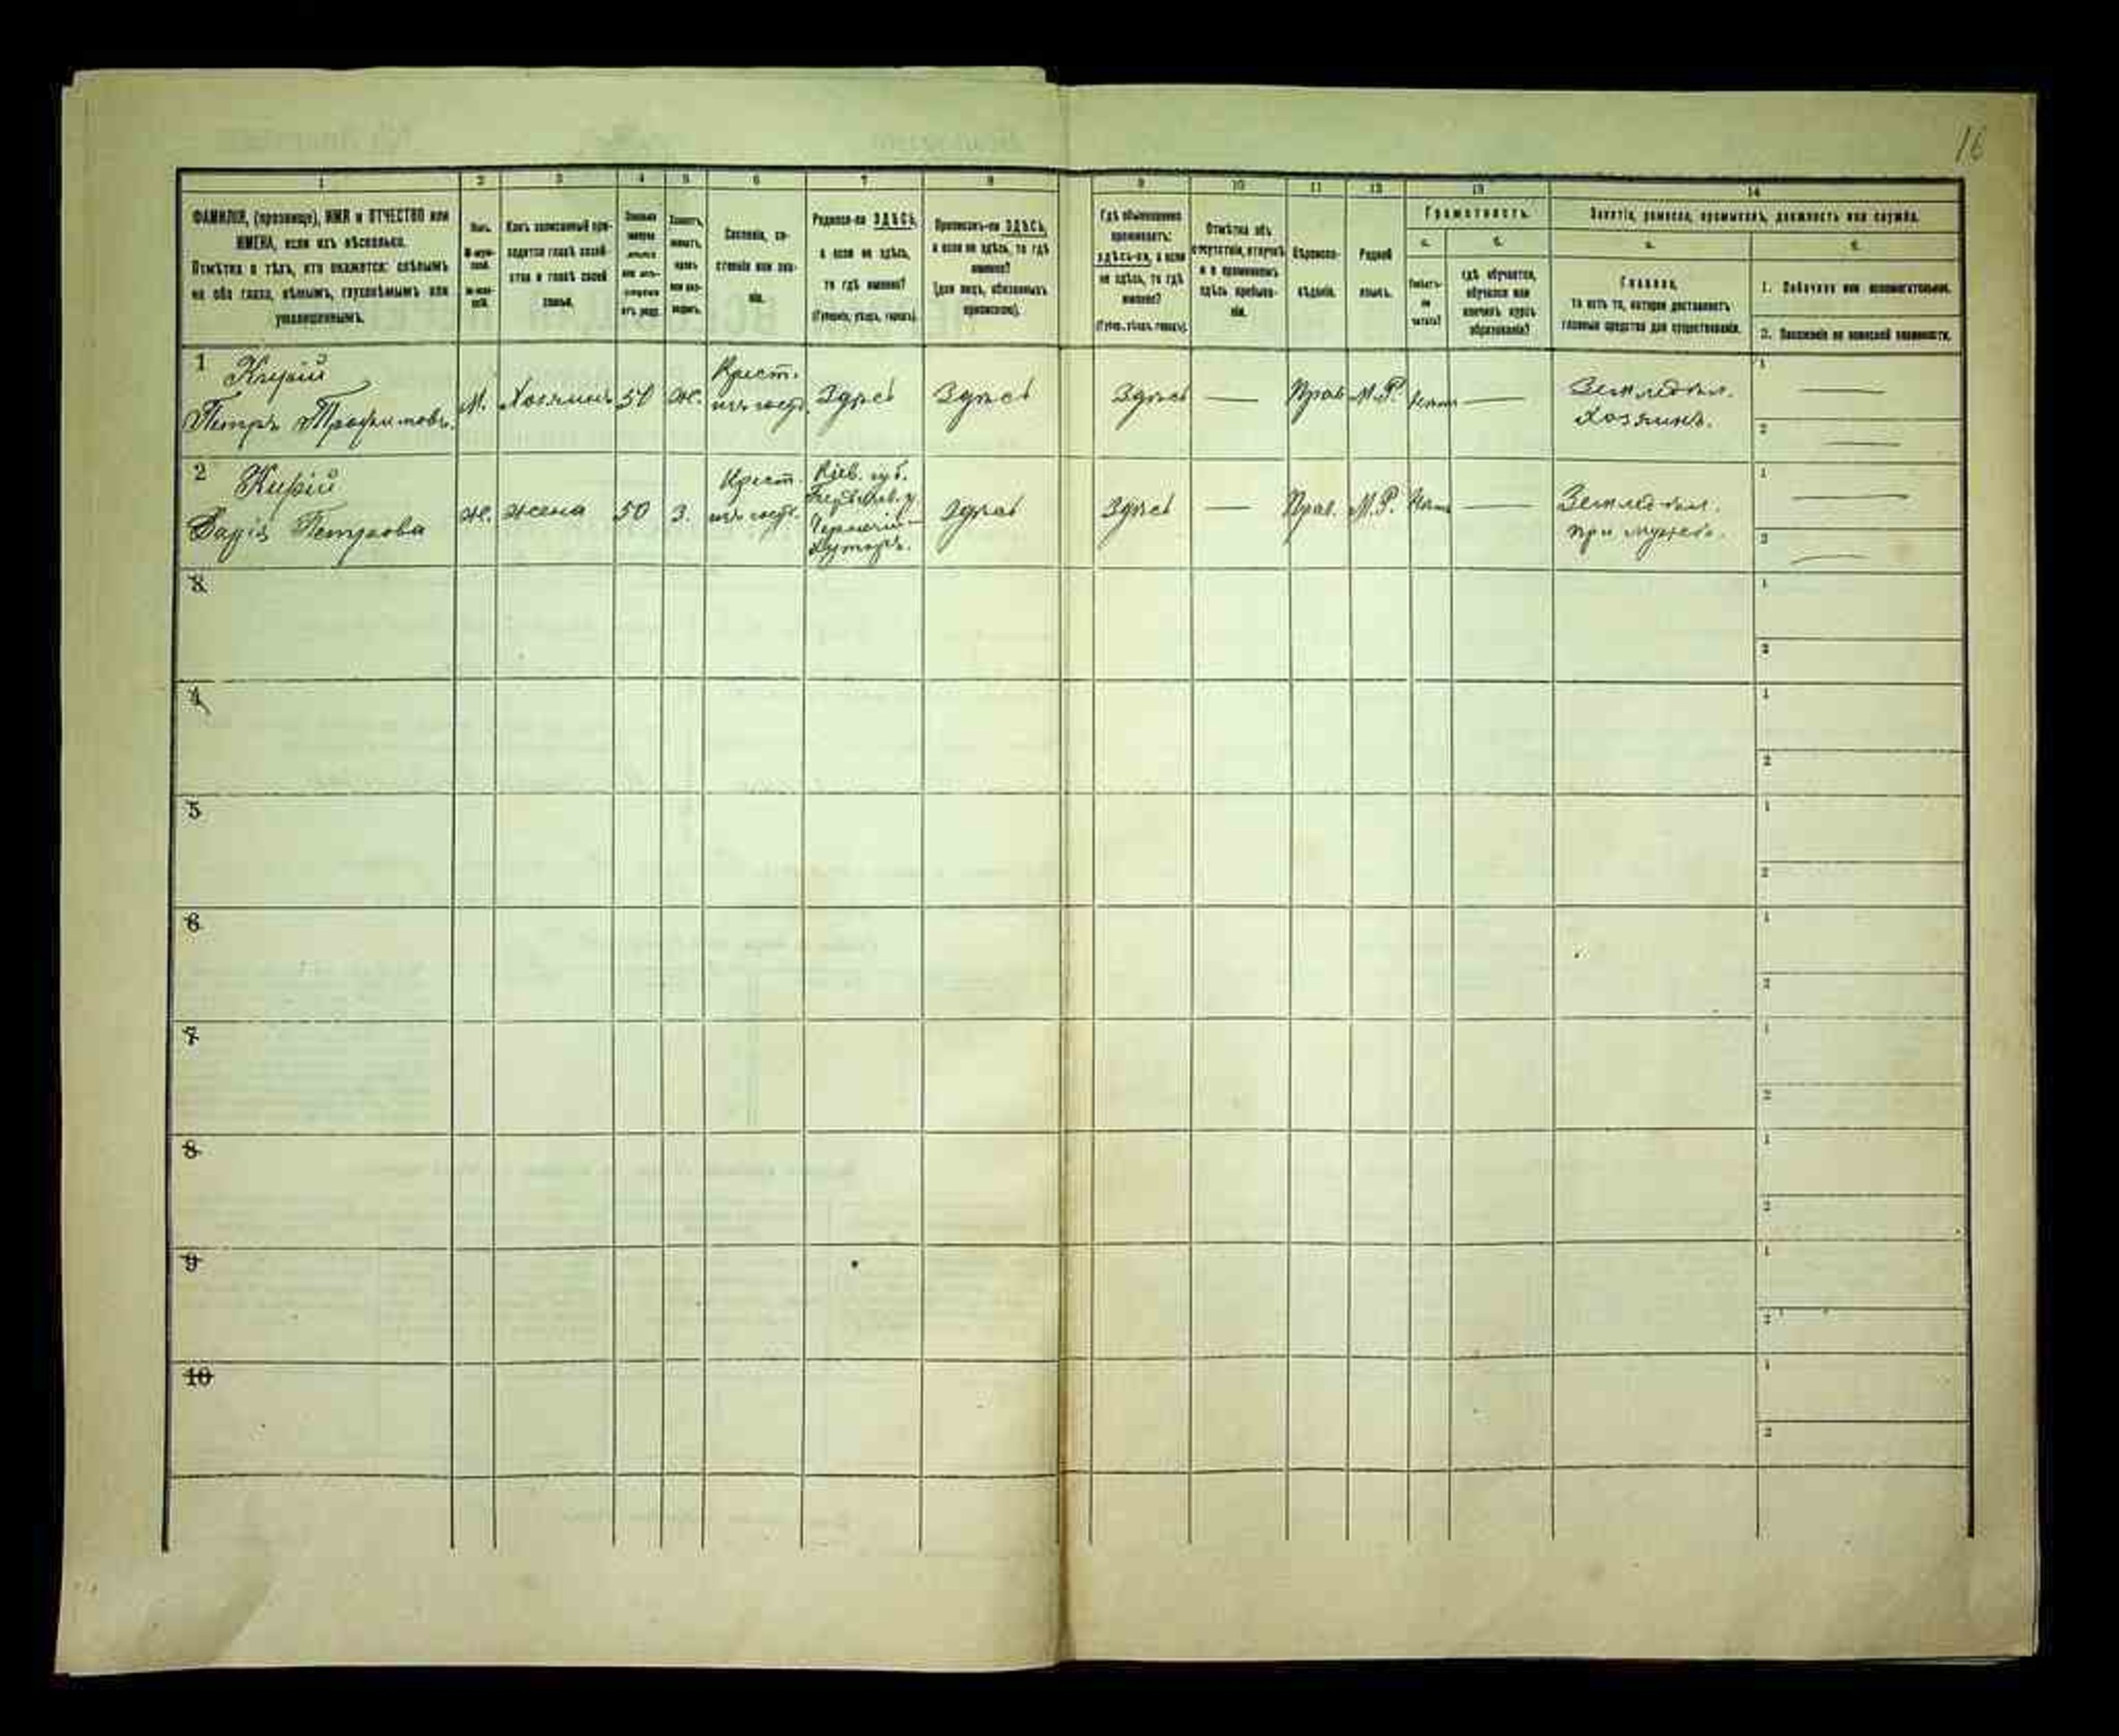 16
1 2 3 4 5 6 7 8 9 10 11 12 13 14
ФАМИЛІЯ, (прозвище), ИМЯ и ОТЧЕСТВО или
ИМЕНА, если ихъ нѣсколько.
Отмѣтка о тѣхъ, кто окажется: слѣпымъ
на оба глаза, нѣмымъ, глухонѣмымъ или
умалишеннымъ.
Полъ.
М-муж-
ской.
Ж-жен-
скій.
Какъ записанный при-
ходится главѣ хозяй-
ства и главѣ своей
семьи.
Сословіе, со-
стояніе или зва-
ніе.
Родился-ли ЗДѢСЬ,
а если не здѣсь,
то гдѣ именно?
(Губернія, уѣздъ, городъ).
Приписанъ-ли ЗДѢСЬ,
а если не здѣсь, то гдѣ
именно?
(для лицъ, обязанныхъ
припискою).
Гдѣ обыкновенно
проживаетъ:
здѣсь-ли, а если
не здѣсь, то гдѣ
именно?
(Губер., уѣздъ, городъ).
Отмѣтка объ
отсутствіи, отлучкѣ
и о временномъ
здѣсь пребыва-
ніи.
Вѣроиспо-
вѣданіе.
Родной
языкъ.
Грамотность.
а. б.
Умѣетъ-
ли
читать?
гдѣ обучается,
обучался или
кончилъ курсъ
образованія?
Занятіе, ремесло, промыселъ, должность или служба.
а. б.
Главное,
то есть то, которое доставляетъ
главныя средства для существованія.
1. Побочное или вспомогательное.
2. Положеніе по воинской повинности.
1 Кирій
Петръ Трофимовъ.
М. Хозяинъ 50 Ж.
Крест.
Здѣсь Здѣсь Здѣсь — Прав М.Р. —
Земледѣл.
Хозяинъ.
1 —
2 —
2 Кирій
Петрова
Ж. жена 50 З.
Крест.
Кіев. губ.
Хуторъ.
Здѣсь Здѣсь — Прав. М.Р. —
Земледѣл.
при мужѣ.
1 —
2 —
3
1
2
4
1
2
5
1
2
6
1
2
7
1
2
8
1
2
9
1
2
10
1
2